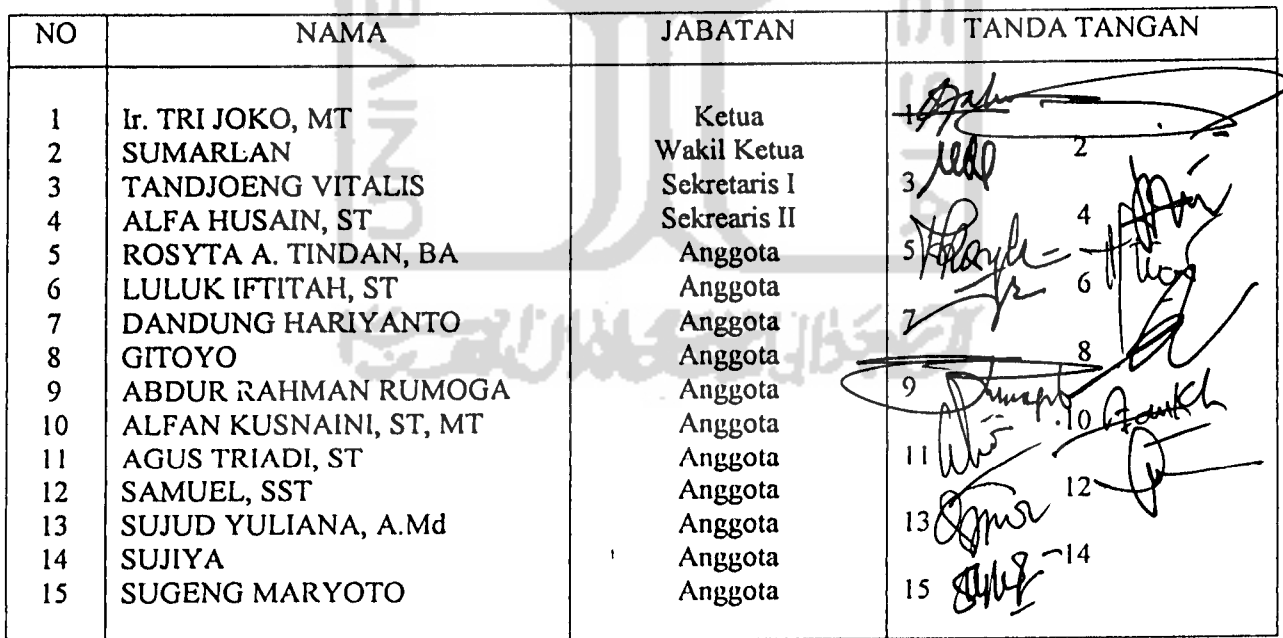 NO NAMA JABATAN TANDA TANGAN
1 Ir. TRI JOKO, MT Ketua 1
2 SUMARLAN Wakil Ketua 2
3 TANDJOENG VITALIS Sekretaris I 3
4 ALFA HUSAIN, ST Sekrearis II 4
5 ROSYTA A. TINDAN, BA Anggota 5
6 LULUK IFTITAH, ST Anggota 6
7 DANDUNG HARIYANTO Anggota 7
8 GITOYO Anggota 8
9 ABDUR RAHMAN RUMOGA Anggota 9
10 ALFAN KUSNAINI, ST, MT Anggota 10
11 AGUS TRIADI, ST Anggota 11
12 SAMUEL, SST Anggota 12
13 SUJUD YULIANA, A.Md Anggota 13
14 SUJIYA Anggota 14
15 SUGENG MARYOTO Anggota 15